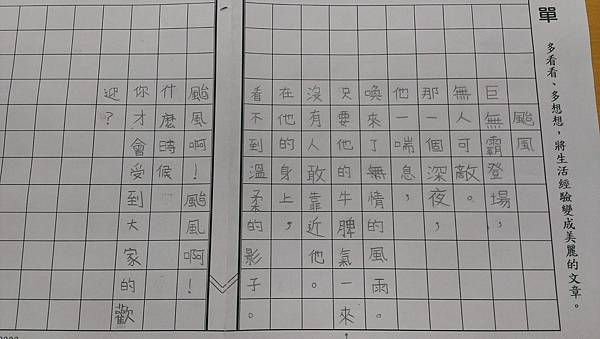 單
多看看、多想想，將生活經驗變成美麗的文章。
颱風
巨無霸登場，
無人可敵。
那一個深夜，
他一喘息，
喚來了無情的風雨。
只要他的牛脾氣一來
沒有人敢靠近他。
在他的身上，
看不到溫柔的影子。
颱風啊！颱風啊！
什麼時候
你才會受到大家的歡
迎？